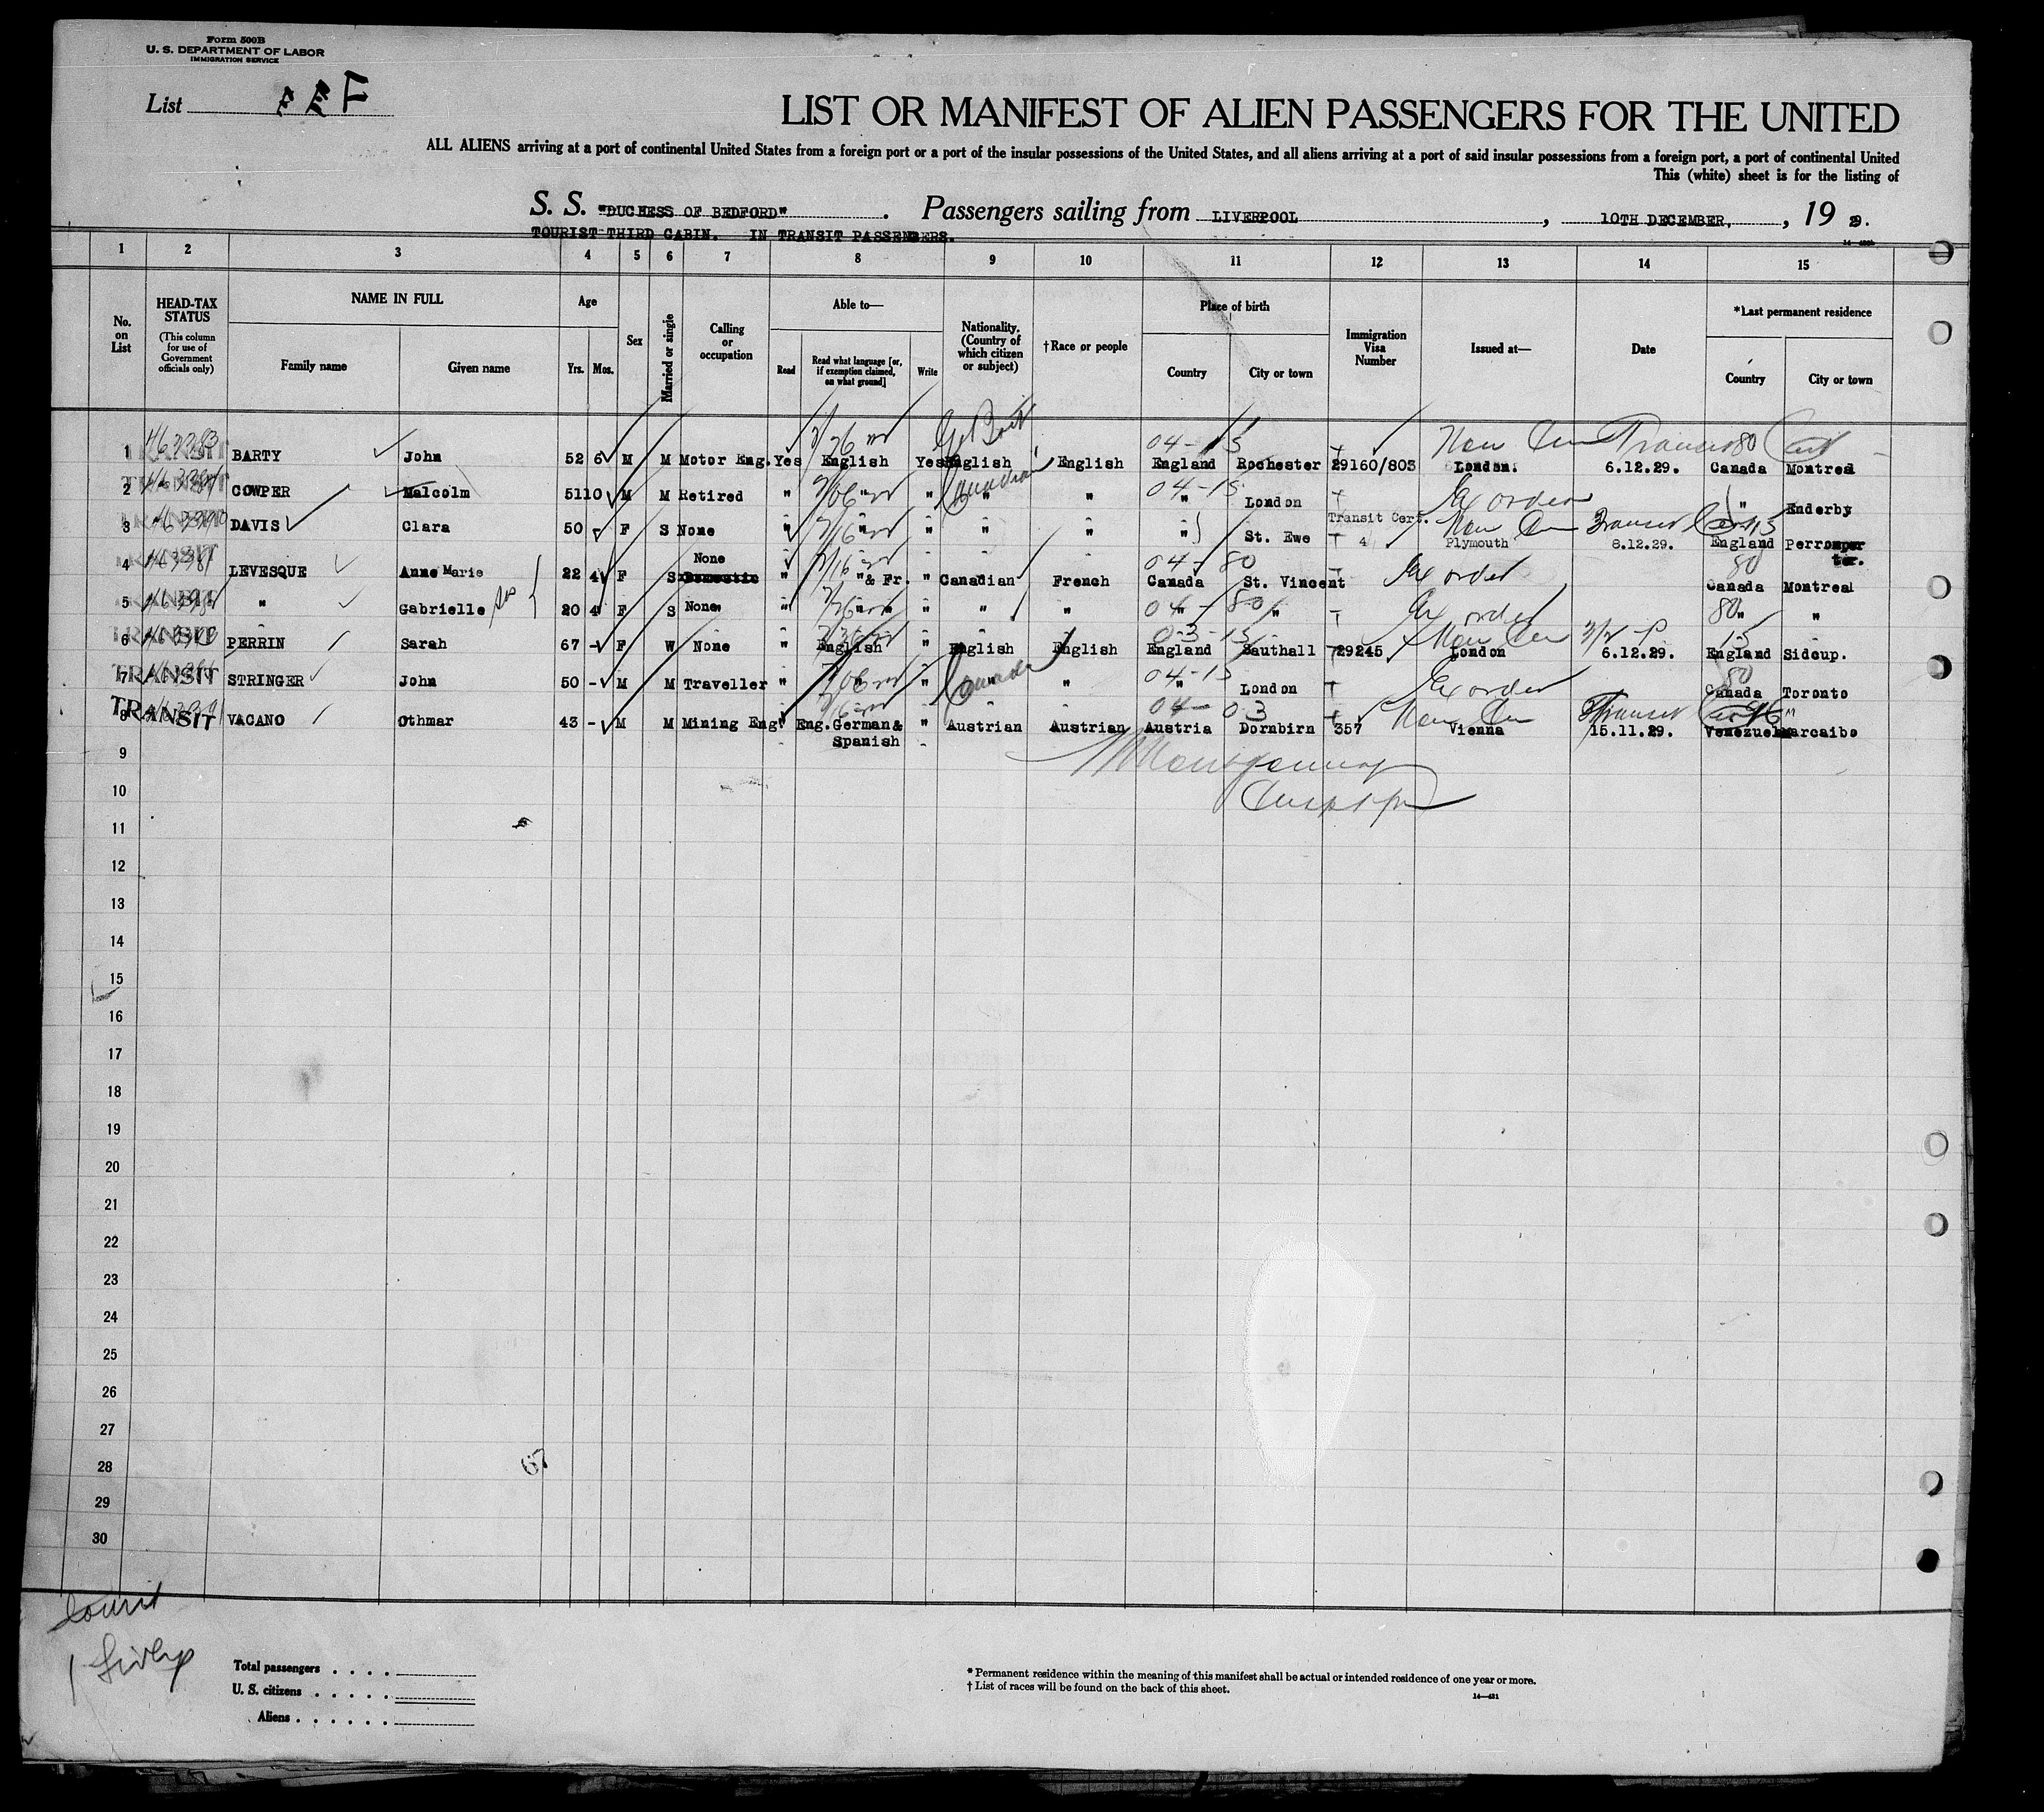 Form 500B
U. S. DEPARTMENT OF LABOR
IMMIGRATION SERVICE
List F
LIST OR MANIFEST OF ALIEN PASSENGERS FOR THE UNITED
ALL ALIENS arriving at a port of continental United States from a foreign port or a port of the insular possessions of the United States, and all aliens arriving at a port of said insular possessions from a foreign port, a port of continental United
This (white) sheet is for the listing of
S. S. "DUCHESS OF BEDFORD" . Passengers sailing from LIVERPOOL , 10TH DECEMBER, , 19 29.
TOURIST THIRD CABIN. IN TRANSIT PASSENGERS.
1 2 3 4 5 6 7 8 9 10 11 12 13 14 15
No. on List
HEAD-TAX STATUS
(This column for use of Government officials only)
NAME IN FULL
Family name Given name
Age
Yrs. Mos.
Sex
Married or single
Calling or occupation
Able to—
Read
Read what language [or, if exemption claimed, on what ground]
Write
Nationality. (Country of which citizen or subject)
†Race or people
Place of birth
Country City or town
Immigration Visa Number
Issued at—
Date
*Last permanent residence
Country City or town
Gt Brit 04-15 Non Transit 80 Cert
1 TRANSIT BARTY John 52 6 M M Motor Eng. Yes English Yes English English England Rochester 29160/803 London. 6.12.29. Canada Montreal
Canadian 04-15 Ex order
2 TRANSIT COWPER Malcolm 51 10 M M Retired " " " " " " London " Enderby
3 TRANSIT DAVIS Clara 50 - F S None " " " " " " St. Ewe Transit Cert. 4 Plymouth 8.12.29. England Perromper ter.
None 04-80 Ex order 80
4 TRANSIT LEVESQUE Anne Marie 22 4 F S Domestic " " & Fr. " Canadian French Canada St. Vincent Canada Montreal
5 TRANSIT " Gabrielle 20 4 F S None " " " " " " " " Ex order 80 " "
6 TRANSIT PERRIN Sarah 67 - F W None " English " English English England Sauthall 29245 London 6.12.29. England Sidcup.
Canada 04-15 Ex order 80
7 TRANSIT STRINGER John 50 - M M Traveller " " " " " " London Canada Toronto
04-03 Transit
8 TRANSIT VACANO Othmar 43 - M M Mining Eng. " Eng. German & Spanish " Austrian Austrian Austria Dornbirn 357 Vienna 15.11.29. Venezuela Marcaibo
9
10
11
12
13
14
15
16
17
18
19
20
21
22
23
24
25
26
27
67
28
29
30
Total passengers . . . .
U. S. citizens . . . . .
Aliens . . . . . .
* Permanent residence within the meaning of this manifest shall be actual or intended residence of one year or more.
† List of races will be found on the back of this sheet.
14—421